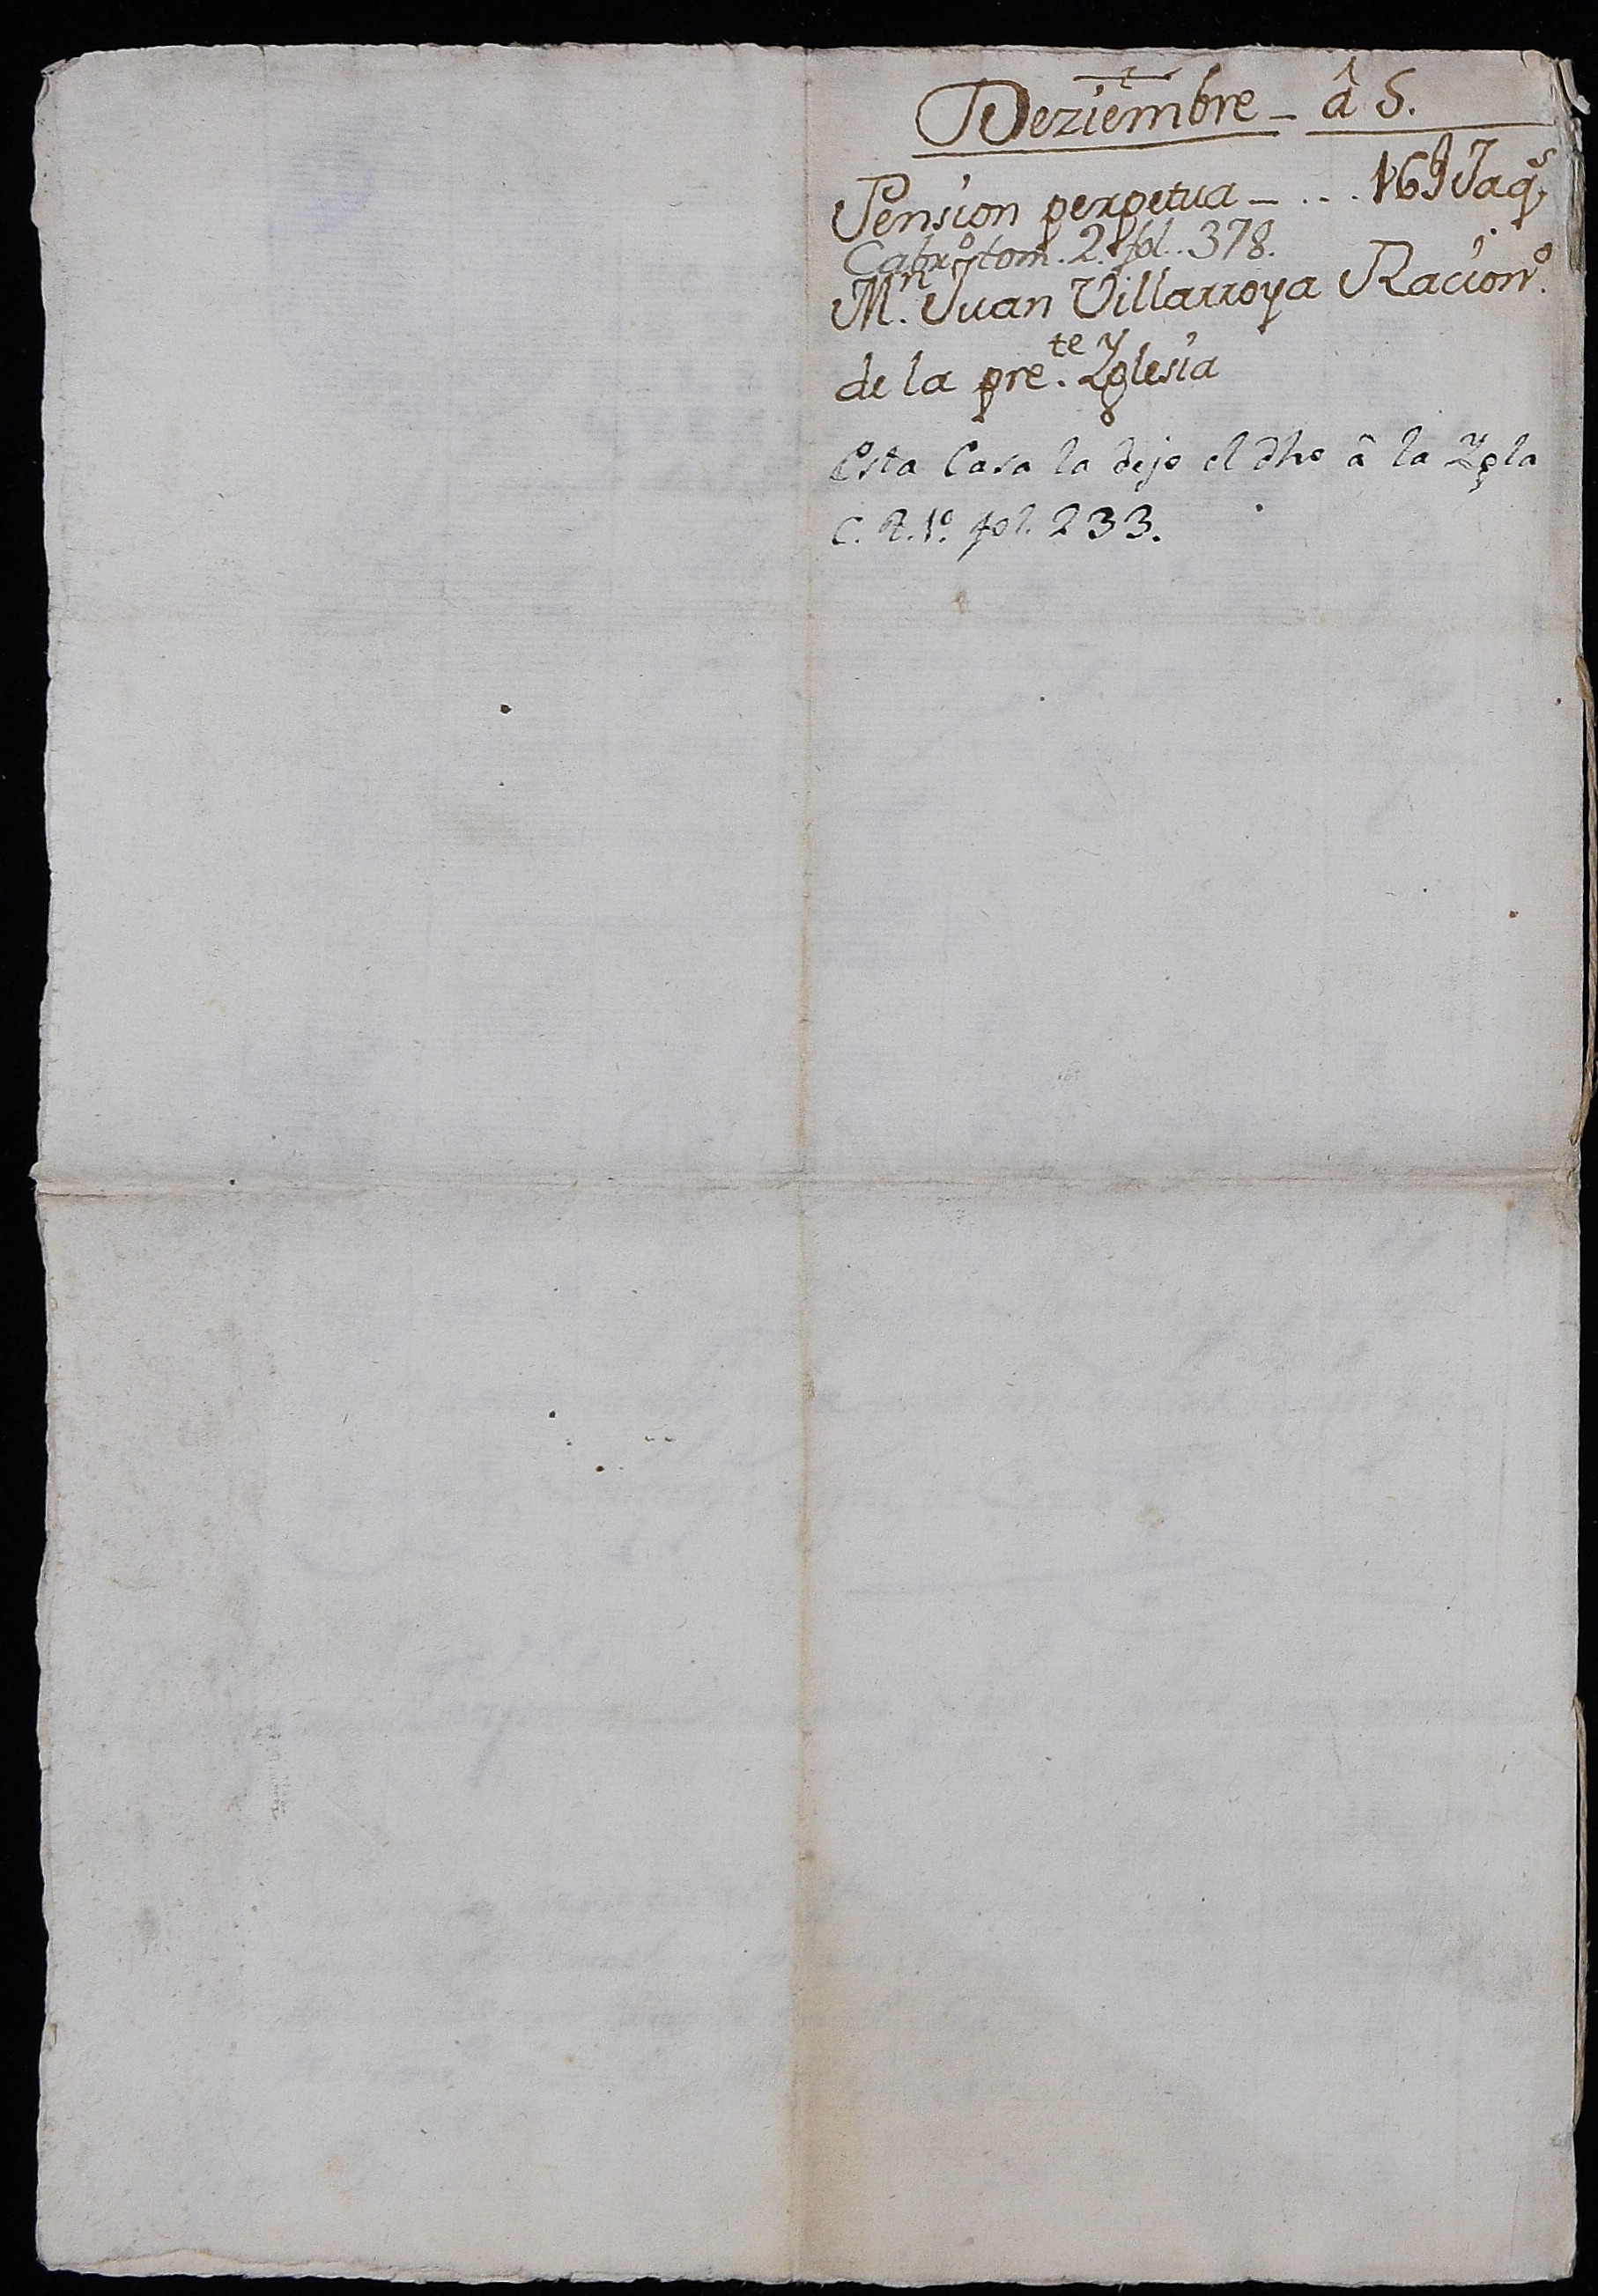 Deziembre - â 5.
Pension perpetua - ... 16 s Jaq.s
Cabr.o tom. 2. fol. 378.
M.n Juan Villarroya Racion.o
de la pre.te Yglesia
Esta Casa la dejo el dho â la Ygla
C. R. 1º. fol. 233.